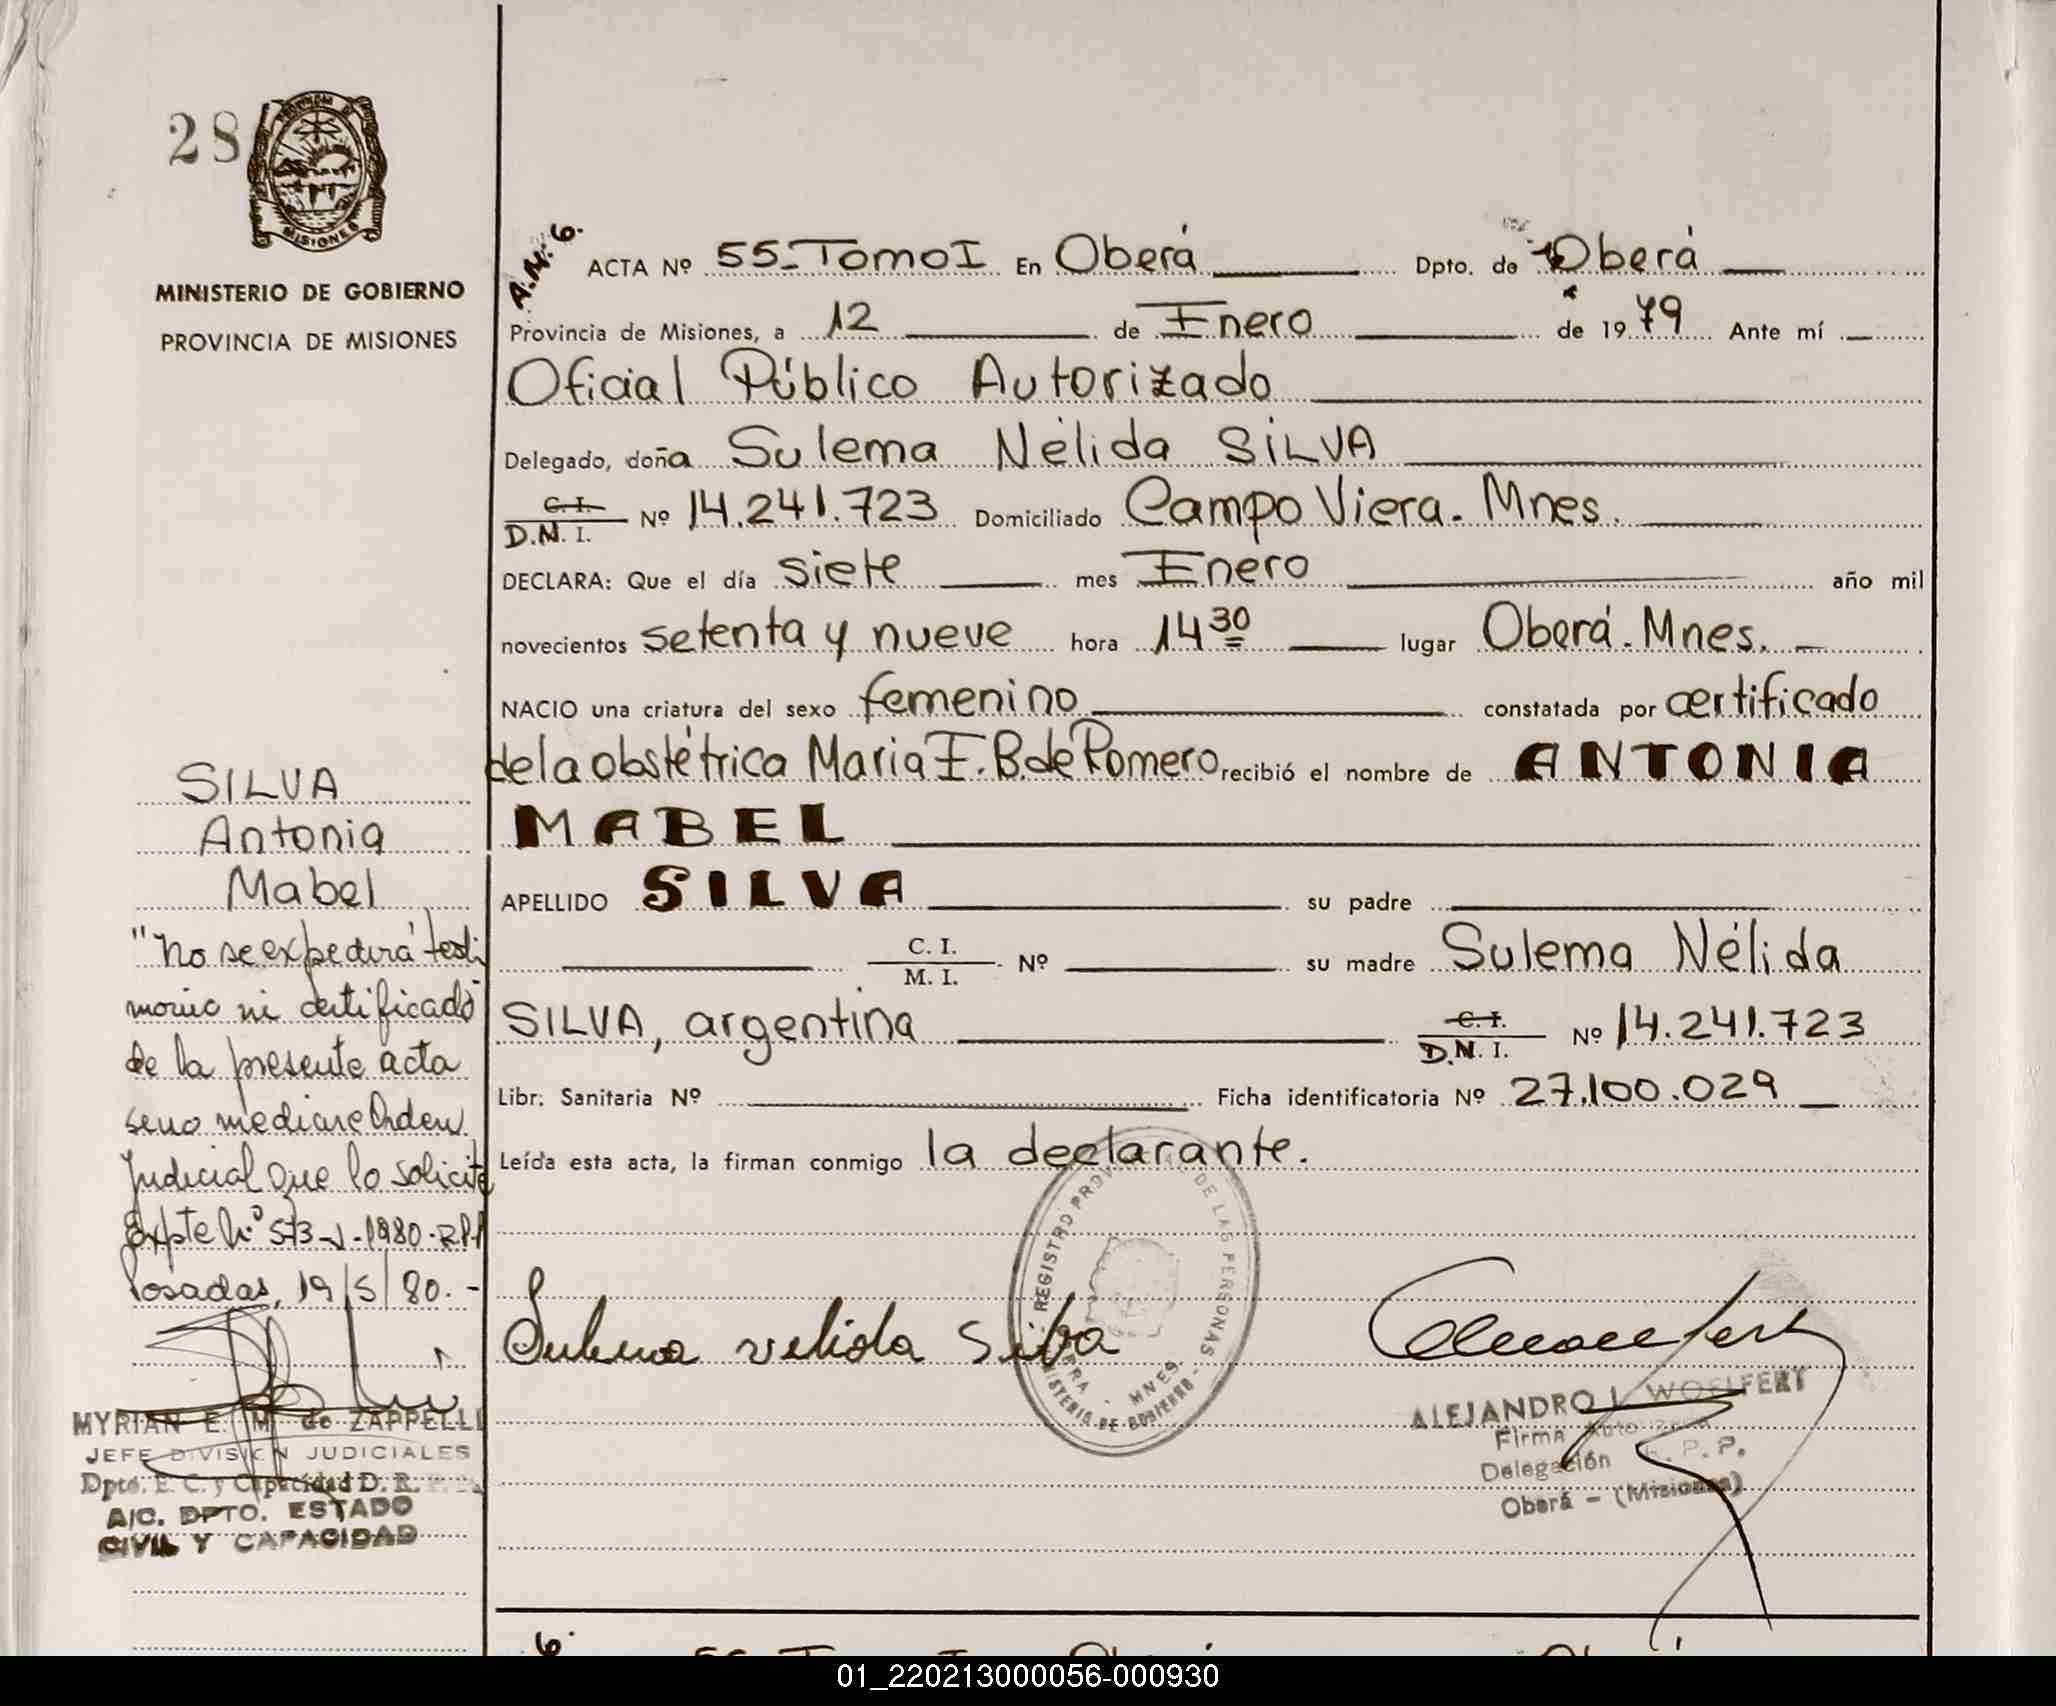 28
PROVINCIA DE
MISIONES
MINISTERIO DE GOBIERNO
PROVINCIA DE MISIONES
A.N. 6.
ACTA Nº 55_Tomo I En Oberá Dpto. de Oberá
Provincia de Misiones, a 12 de Enero de 1979 Ante mí
Oficial Público Autorizado
Delegado, doña Sulema Nélida SILVA
C. I.
D.N. I. Nº 14.241.723 Domiciliado Campo Viera. Mnes.
DECLARA: Que el día siete mes Enero año mil
novecientos setenta y nueve hora 14 30 lugar Oberá. Mnes.
NACIO una criatura del sexo femenino constatada por certificado
de la obstétrica Maria E. B. de Romero recibió el nombre de ANTONIA
MABEL
APELLIDO SILVA su padre
C. I.
M. I. Nº su madre Sulema Nélida
SILVA, argentina C. I.
D.N. I. Nº 14.241.723
Libr. Sanitaria Nº Ficha identificatoria Nº 27.100.029
Leída esta acta, la firman conmigo la declarante.
SILVA
Antonia
Mabel
"No se expedirá testi
monio ni certificado
de la presente acta
sino mediare Orden
Judicial que lo solicite
Expte Nº 573-J-1980-R.P.P
Posadas, 19/5/80.-
MYRIAN E. M. de ZAPPELLI
JEFE DIVISION JUDICIALES
Dpto. E. C. y Capacidad D. R.
A/C. DPTO. ESTADO
CIVIL Y CAPACIDAD
Sulema nelida Silva
REGISTRO PROV DE LAS PERSONAS
MINISTERIO DE GOBIERNO
OBERA - MNES
ALEJANDRO L. WOELFERT
Firma Autorizada
Delegación R. P. P.
Oberá - (Misiones)
6.
01_220213000056-000930